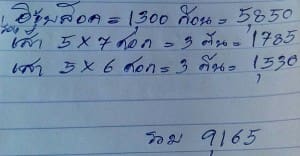 อิฐบล๊อค = 1,300 ก้อน = 5,850
เสา 5 X 7 ศอก = 3 ต้น = 1785
เสา 5 X 6 ศอก = 3 ต้น = 1,530
รวม 9,165